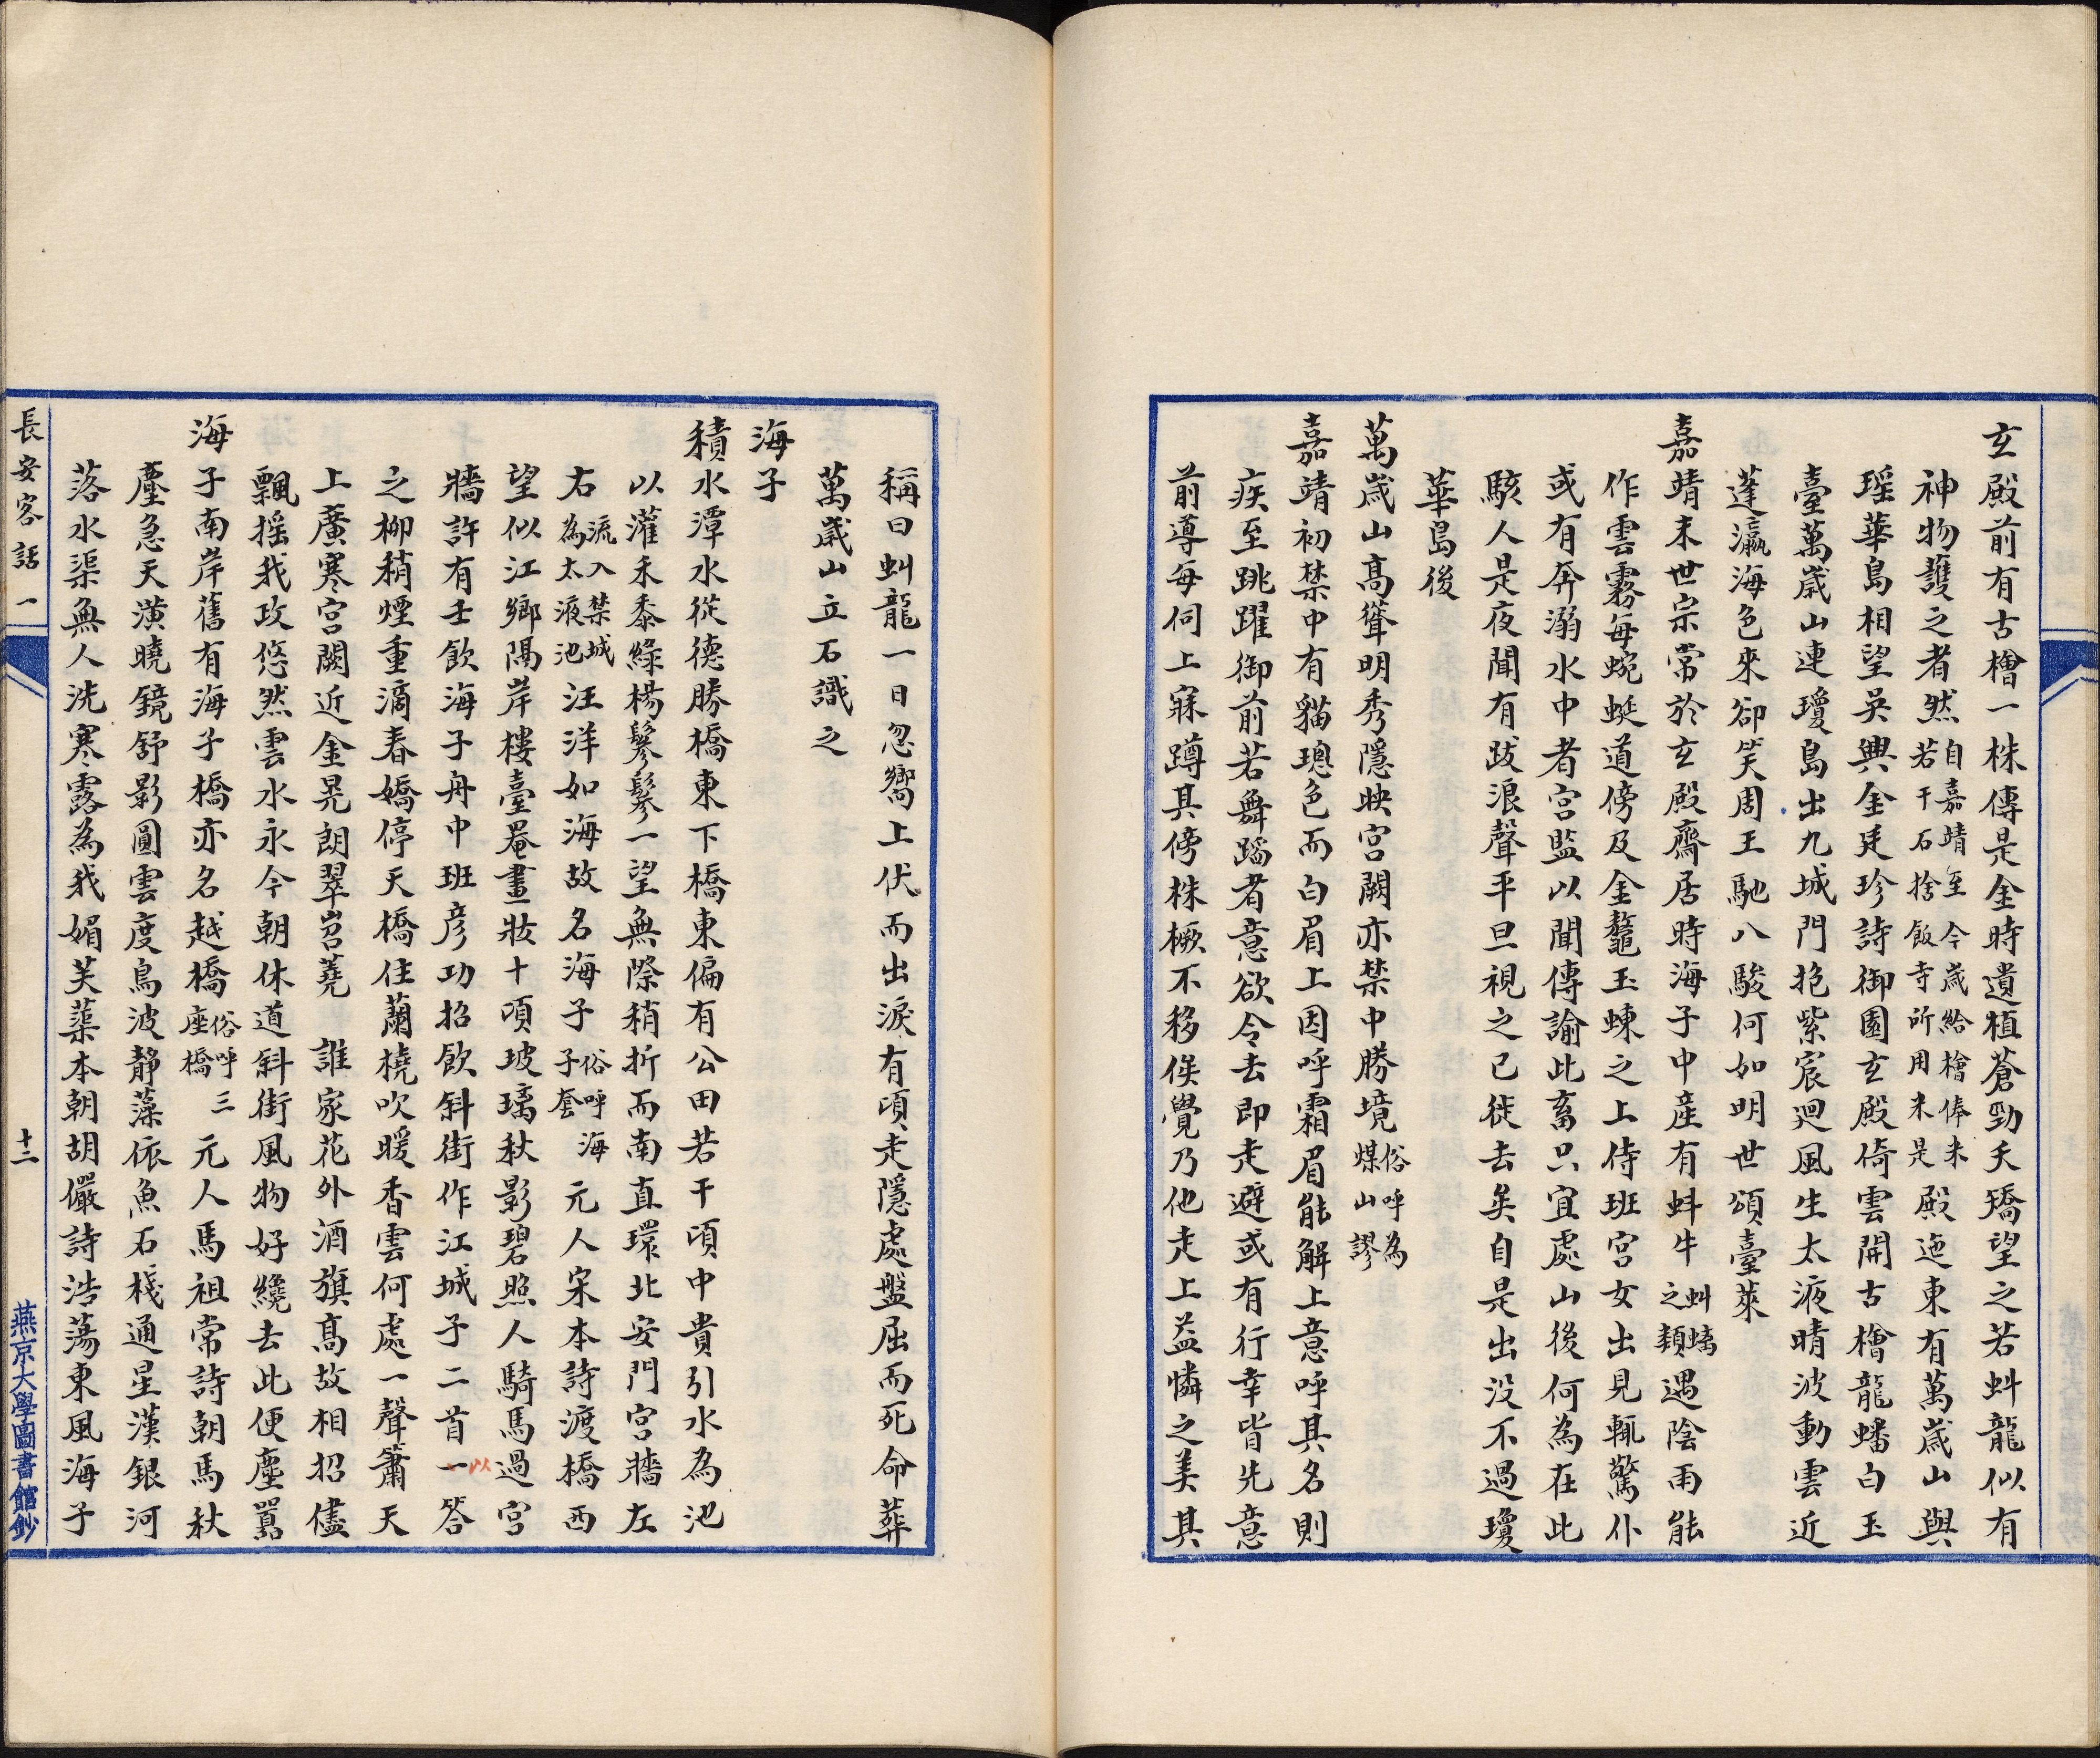 玄殿前有古檜一株傳是金時遺植蒼勁夭矯望之若虯龍似有
神物護之者然自嘉靖至今歲給檜俸米若干石捨飯寺所用米是殿迤東有萬歲山與
瑶華島相望吳興金廷珍詩御園玄殿倚雲開古檜龍蟠白玉
臺萬歲山連瓊島出九城門抱紫宸迴風生太液晴波動雲近
蓬瀛海色來卻笑周王馳八駿何如明世頌臺萊
嘉靖末世宗常於玄殿齋居時海子中產有蚪牛虯螭之類遇陰雨能
作雲霧每蜿蜒道傍及金鼇玉蝀之上侍班宮女出見輒驚仆
或有奔溺水中者宮監以聞傳諭此畜只宜處山後何為在此
駭人是夜聞有跋浪聲平旦視之已徙去矣自是出沒不過瓊
華島後
萬歲山高聳明秀隱映宮闕亦禁中勝境俗呼為煤山謬
嘉靖初禁中有貓璁色而白眉上因呼霜眉能解上意呼其名則
疾至跳躍御前若舞蹈者意欲令去即走避或有行幸皆先意
前導每伺上寐蹲其傍株橛不移俟覺乃他走上益憐之美其
稱曰虯龍一日忽嚮上伏而出淚有頃走隱處盤屈而死命葬
萬歲山立石識之
海子
積水潭水從德勝橋東下橋東偏有公田若干頃中貴引水為池
以灌禾黍綠楊鬖鬖一望無際稍折而南直環北安門宮牆左
右流入禁城為太液池汪洋如海故名海子俗呼海子套元人宋本詩渡橋西
望似江鄉隔岸樓臺罨畫妝十頃玻璃秋影碧照人騎馬過宮
牆許有壬飲海子舟中班彥功招飲斜街作江城子二首一以答
之柳稍煙重滴春嬌停天橋住蘭橈吹暖香雲何處一聲簫天
上廣寒宮闕近金晃朗翠岧蕘　誰家花外酒旗高故相招儘
飄搖我政悠然雲水永今朝休道斜街風物好纔去此便塵囂
海子南岸舊有海子橋亦名越橋俗呼三座橋元人馬祖常詩朝馬秋
塵急天潢曉鏡舒影圓雲度鳥波靜藻依魚石棧通星漢銀河
落水渠無人洗寒露為我媚芙蕖本朝胡儼詩浩蕩東風海子
長安客話 一
十二
燕京大學圖書館鈔